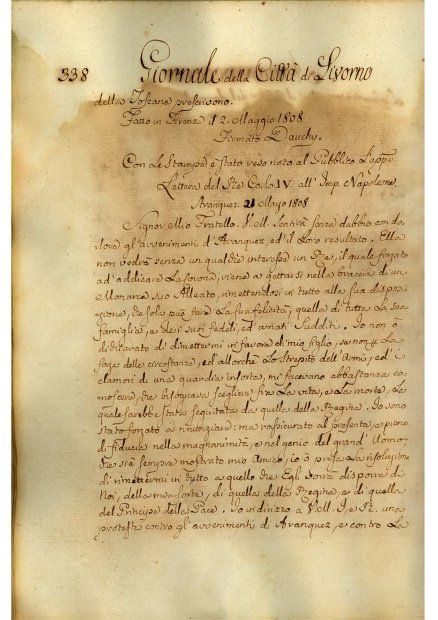 338 Giornale della Città di Livorno
della Toscana prescivono.
Fatto in Firenze 12. Maggio 1808
Firmato Dauchy.
Con le Stampe è stato reso noto al Pubblico l'app.
Lettera del Re Carlo IV. all' Imp. Napoleone.
Aranquez 21 Marzo 1808
Signor Mio Fratello. V. M. sentirà senza dubbio con do-
lore gl'avvenimenti d'Aranquez, ed il Loro resultato. Ella
non vedrà senza un qualche interesse un Re, il quale forzato
ad'addicare la corona, viene a gettarsi nella braccia di un
Monarca suo Alleato, rimettendosi in tutto alla sua disposi-
zione, che sola può fare la sua felicità, quella di tutta la sua
famiglia, e de i suoi fedeli, ed amati Sudditi. Io non ò
dichiarato di dimettermi in favore di mio figlio, se non p. la
forza delle circostanze, ed allorchè lo strepito dell'Armi, ed i
clamori di una guardia insorta, mi facevano abbastanza co-
noscere, che bisognava scegliere fra la vita, e la morte, la
quale sarebbe stata seguitata da quella della Regina. Io sono
stato forzato a rinunziare: ma rassicurato al presente, e pieno
di fiducia nella magnanimità, e nel genio del grand'Uomo,
che si è sempre mostrato mio Amico, io ò presa la risoluzione
di rimettermi in tutto a quello che Egli vorrà disporre di
Noi, della mia sorte, di quella della Regina, e di quella
del Principe della Pace. Io indirizzo a V. M. I. e R. una
protesta contro gli avvenimenti di Aranquez, e contro la